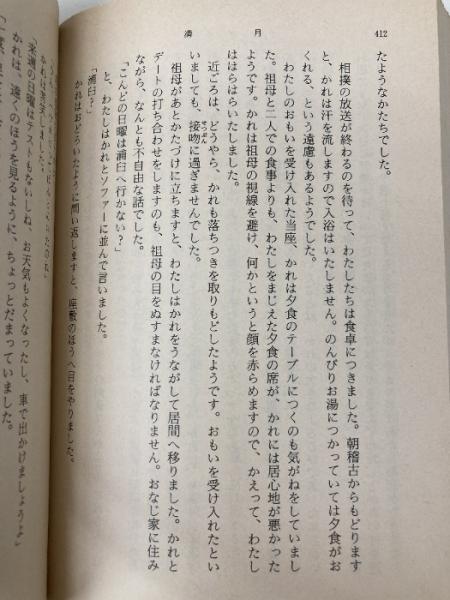 満月
412
たようなかたちでした。
相撲の放送が終わるのを待って、わたしたちは食卓につきました。朝稽古からもどります
と、かれは汗を流しますので入浴はいたしません。のんびりお湯につかっていては夕食がお
くれる、という遠慮もあるようでした。
わたしのおもいを受け入れた当座、かれは夕食のテーブルにつくのも気がねをしていまし
た。祖母と二人での食事よりも、わたしをまじえた夕食の席が、かれには居心地が悪かった
ようです。かれは祖母の視線を避け、何かというと顔を赤らめますので、かえって、わたし
ははらはらいたしました。
近ごろは、どうやら、かれも落ちつきを取りもどしたようです。おもいを受け入れたとい
いましても、接吻に過ぎませんでした。
せっぷん
祖母があとかたづけに立ちますと、わたしはかれをうながして居間へ移りました。かれと
デートの打ち合わせをしますのも、祖母の目をぬすまなければなりません。おなじ家に住み
ながら、なんとも不自由な話でした。
「こんどの日曜は浦臼へ行かない？」
と、わたしはかれとソファーに並んで言いました。
「浦臼？」
かれはおどろいたように問い返しますと、座敷のほうへ目をやりました。
「来週の日曜はテストもないしね、お天気もよくなったし、車で出かけましょうよ」
かれは、遠くのほうを見るように、ちょっとだまっていました。